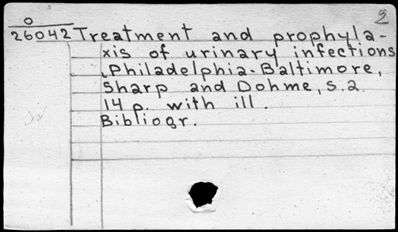 2
0
26042 Treatment and prophyla-
xis of urinary infections
Philadelphia-Baltimore,
Sharp and Dohme, s.a.
14 p. with ill.
Bibliogr.